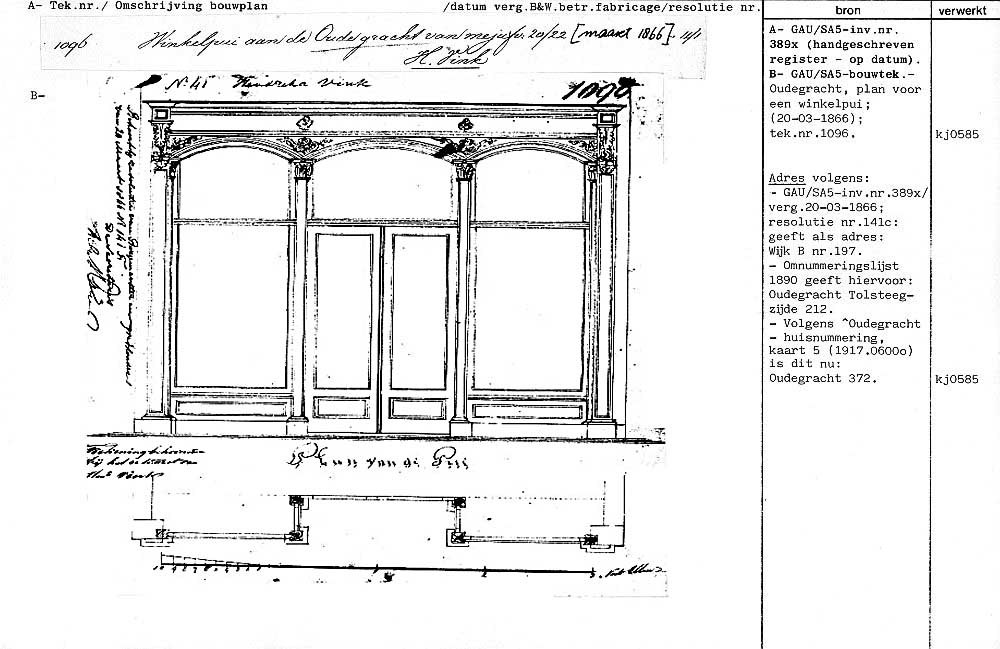 A- Tek.nr./ Omschrijving bouwplan /datum verg.B&W.betr.fabricage/resolutie nr.
1096 Winkelpui aan de Oude gracht van mejufvr. 20/22 [maart 1866]
H. Vink
B-
No. 41 Hendrika Vink
1096
Plan van de Pui
bron
verwerkt
A- GAU/SA5-inv.nr.
389x (handgeschreven
register - op datum).
B- GAU/SA5-bouwtek.-
Oudegracht, plan voor
een winkelpui;
(20-03-1866);
tek.nr.1096.
kj0585
Adres volgens:
- GAU/SA5-inv.nr.389x/
verg.20-03-1866;
resolutie nr.141c:
geeft als adres:
Wijk B nr.197.
- Omnummeringslijst
1890 geeft hiervoor:
Oudegracht Tolsteeg-
zijde 212.
- Volgens ^Oudegracht
- huisnummering,
kaart 5 (1917.0600o)
is dit nu:
Oudegracht 372.
kj0585